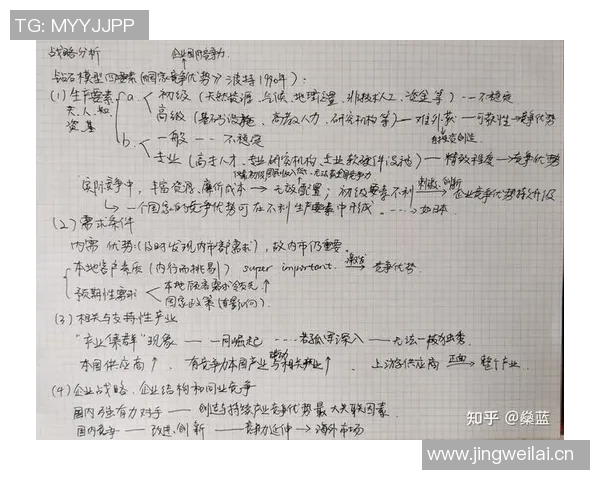 TG: MYYJJPP
战略分析 企业国际竞争力
钻石模型四要素《国家竞争优势》波特1990年）：
(1) 生产要素 a. 初级（天然资源、气候、地理位置、非技术人工、资金等）--不稳定
天、人、知 高级（基础设施、高教人力、研究机构等）—难外求—可靠性→竞争优势
资、基
b. 一般 -- 不稳定
专业（高专人才、专业研究机构、专业软硬件设施）—精致程度→竞争优势
实际竞争中，丰富资源、廉价成本→无效配置；初级要素不利 刺激 创新 企业竞争优势持久升级
一个国家的竞争优势可在不利生产要素中形成。--→如日本
(2) 需求条件
内需优势（及时发现内市部需求），故内市仍重要。
本地客户素质（内行而挑剔）super important. 激发 竞争优势.
预期性需求 本地顾客需求领先↑
国家政策（有影响）.
(3) 相关与支持性产业
“产业集群”现象 — 一同崛起 -- 若孤军深入 — 无法一枝独秀.
本国供应商↑，有竞争力本国产业与相关产业↑. 上游供应商 正面 整个产业.
(4) 企业战略、企业结构和同业竞争
国内强有力对手 — 创造与持续产业竞争优势最大关联因素.
国内竞争 — 改进、创新 — 竞争力延伸→海外市场
知乎 @燊蓝
www.jingweilai.cn